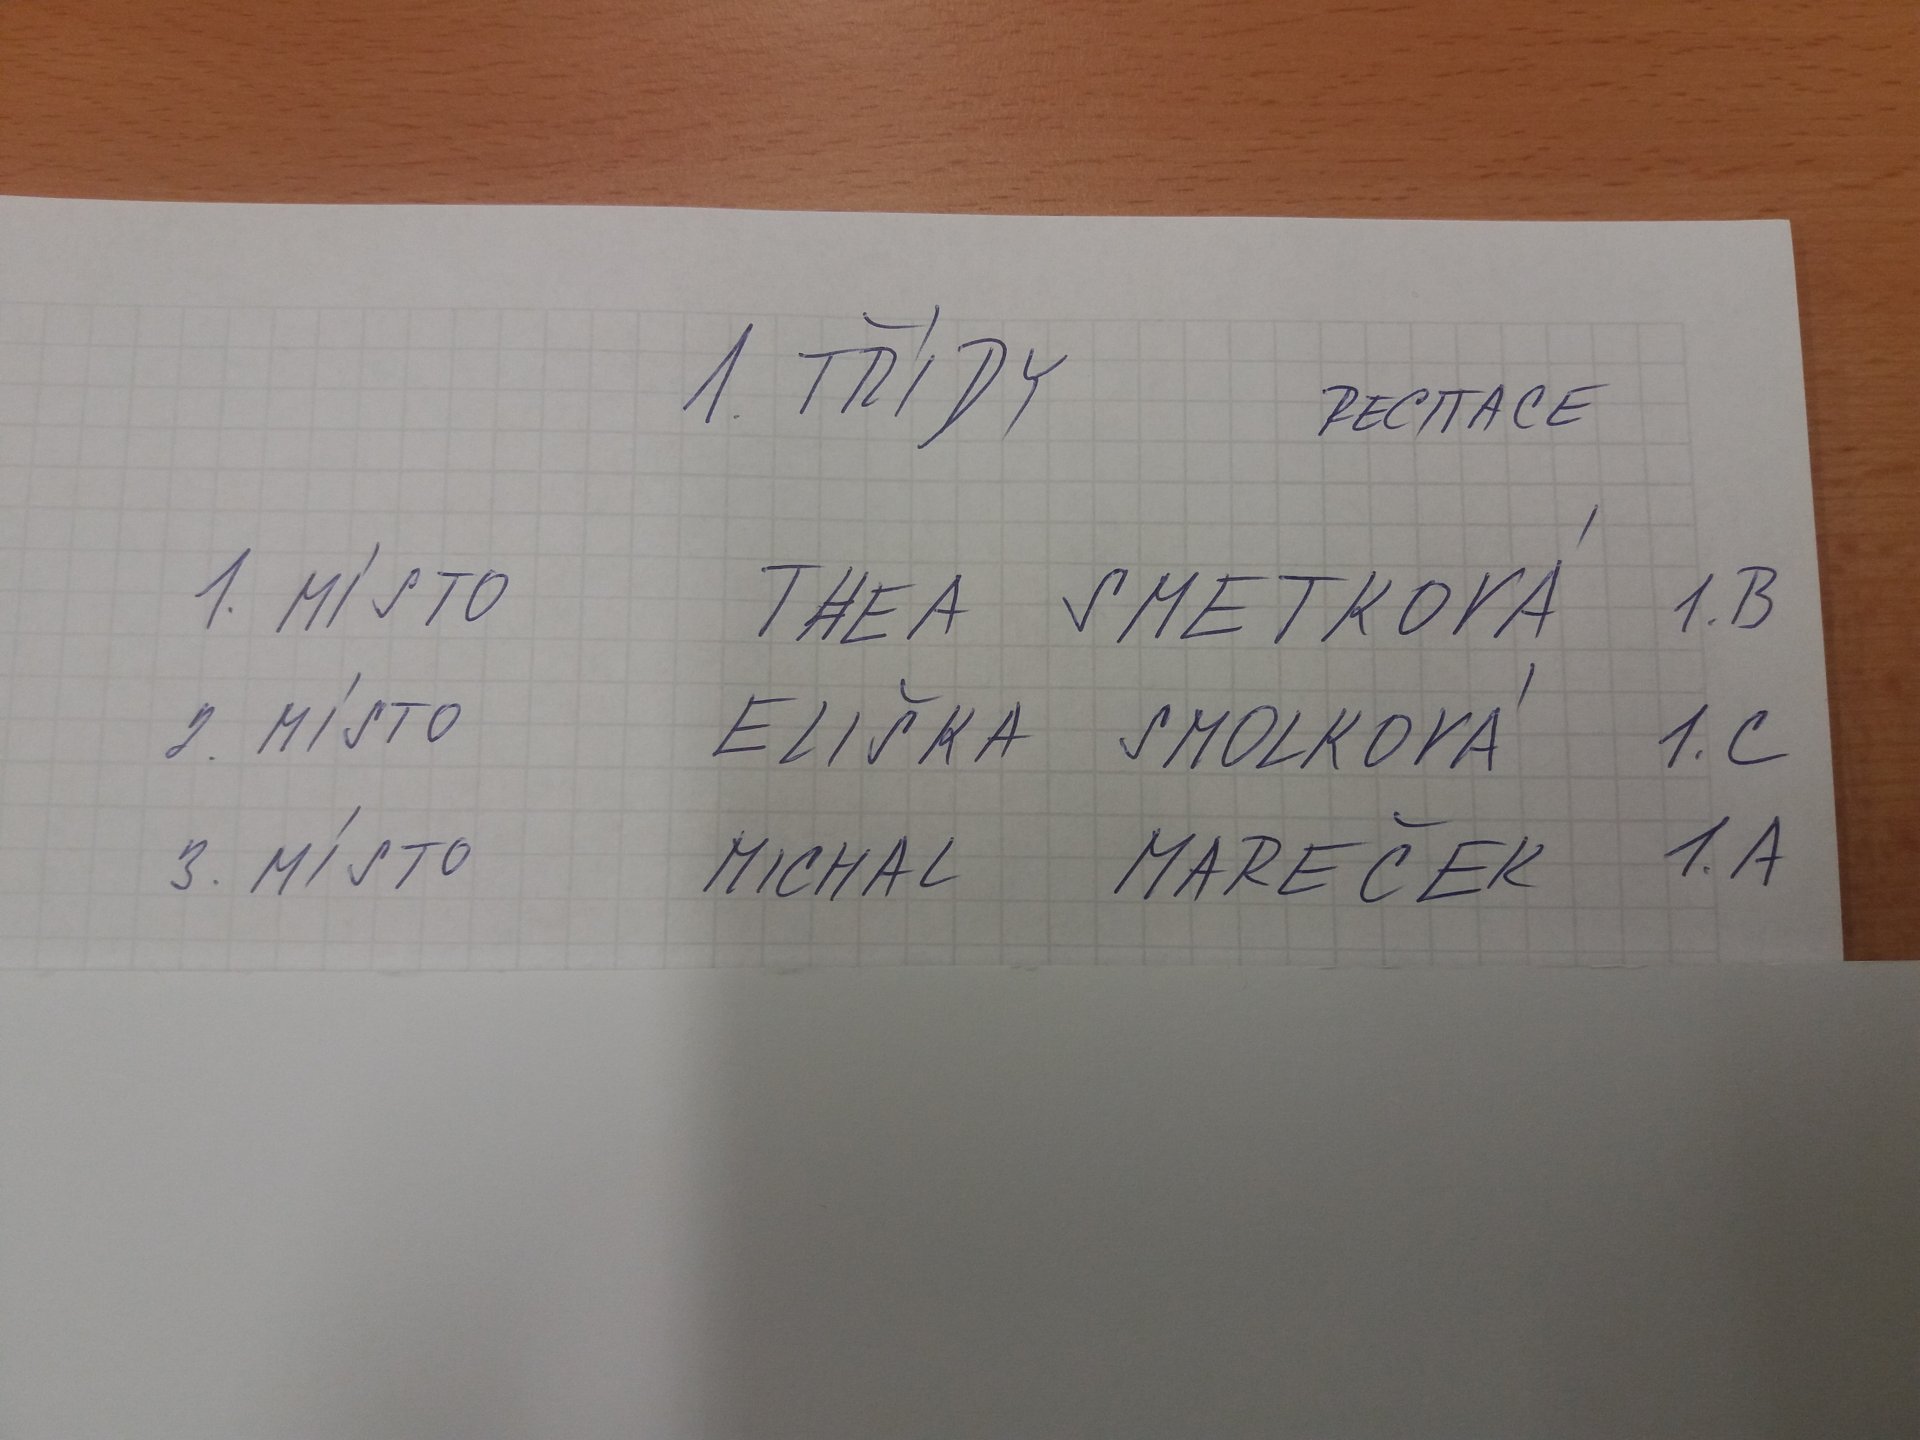 1. TŘÍDY RECITACE
1. MÍSTO THEA SMETKOVÁ 1.B
2. MÍSTO ELIŠKA SMOLKOVÁ 1.C
3. MÍSTO MICHAL MAREČEK 1.A